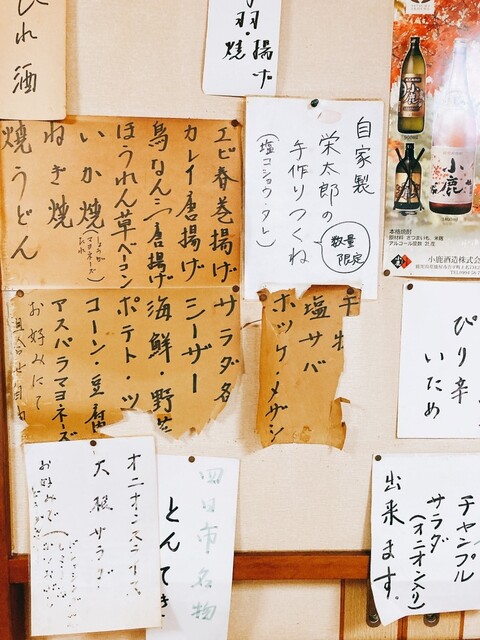 ひれ酒
手羽・揚げ
焼
エビ春巻揚げ
カレイ唐揚げ
鳥なんこつ唐揚げ
ほうれん草ベーコン
いか焼
ねぎ焼
焼うどん
自家製
栄太郎の
手作りつくね
(塩コショウ・タレ)
数量
限定
小鹿
本格焼酎
原材料 さつまいも、米麹
アルコール度数 21度
小鹿酒造株式会社
サラダ各
シーザー
海鮮・野菜
ポテト・ツ
コーン・豆腐
アスパラマヨネーズ
お好みにて
干物
塩サバ
ホッケ・メザシ
ぴり辛
いため
オニオンスライス
大根サラダ
お好みで
四日市名物
とんてき
チャンプル
サラダ
(オニオン入り)
出来ます。